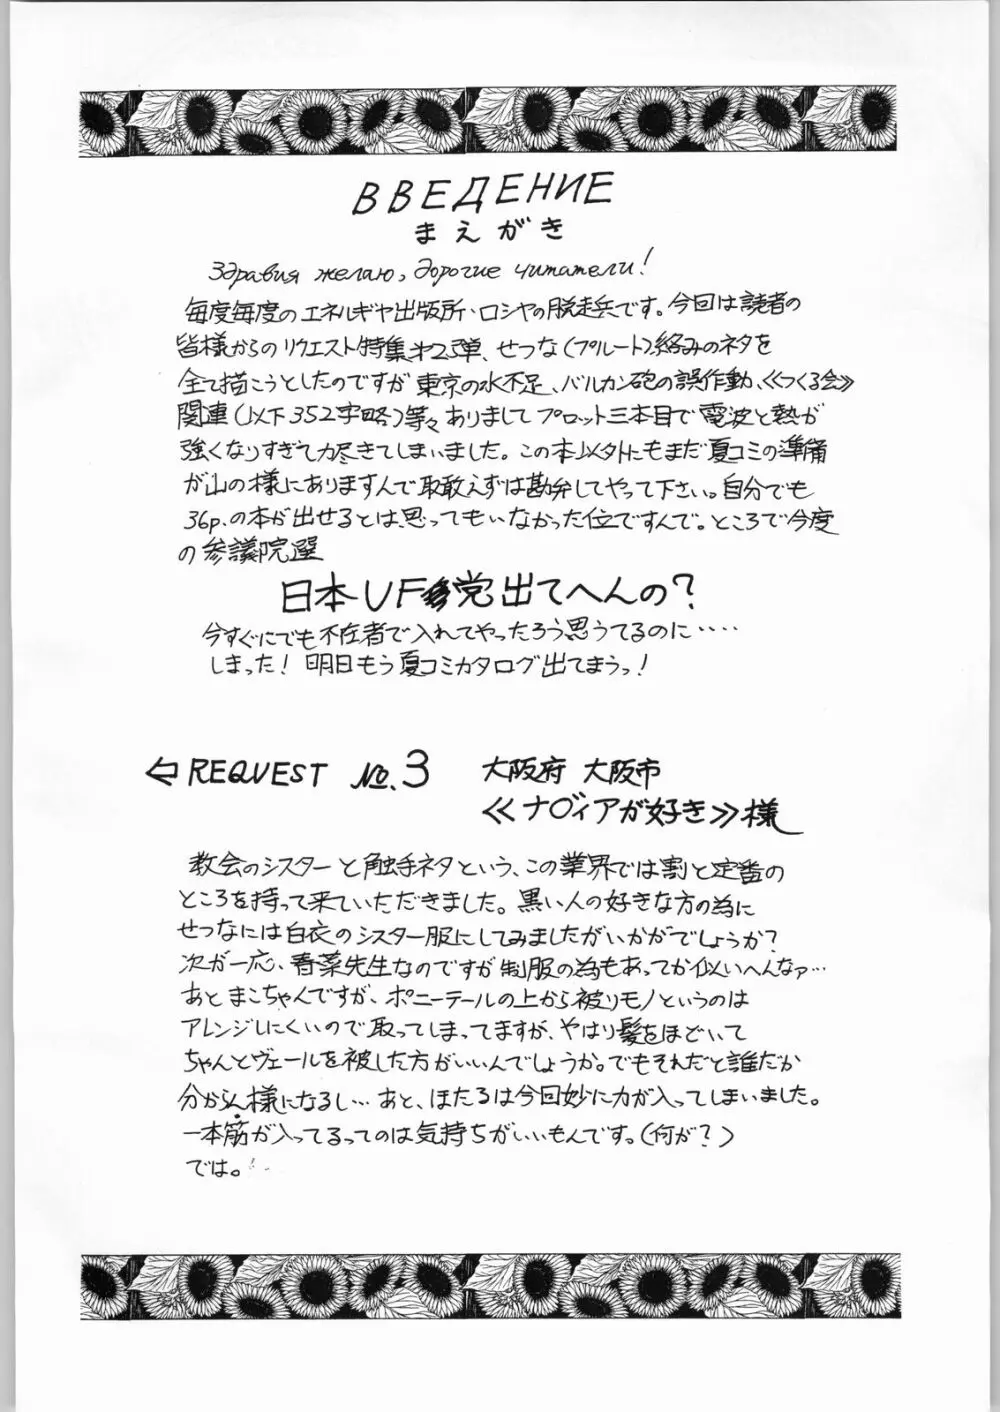 ВВЕДЕНИЕ
まえがき
Здравия желаю, дорогие читатели!
毎度毎度のエネルギヤ出版所・ロシヤの脱走兵です。今回は読者の
皆様からのリクエスト特集オ2弾、せつな(プルート)絡みのネタを
全て描こうとしたのですが東京の水不足、バルカン砲の誤作動、≪つくる会≫
関連(以下352字略)等々ありましてプロット三本目で電波と熱が
強くなりすぎて力尽きてしまいました。この本以外にもまだ夏コミの準備
が山の様にありますんで取敢えずは勘弁してやって下さい。自分でも
36p.の本が出せるとは、思ってもいなかった位ですんで。ところで今度
の参議院選
日本UF党出てへんの?
今すぐにでも不在者で入れてやったろう思うてるのに‥‥
しまった!明日もう夏コミカタログ出てまうっ!
⇦REQUEST No.3 大阪府 大阪市
≪ナディアが好き≫様
教会のシスターと触手ネタという、この業界では割と定番の
ところを持って来ていただきました。黒い人の好きな方の為に
せつなには白衣のシスター服にしてみましたがいかがでしょうか?
次が一応、春菜先生なのですが制服の為もあってか似いへんなァ…
あとまこちゃんですが、ポニーテールの上から被りモノというのは
アレンジしにくいので取ってしまってますが、やはり髪をほどいて
ちゃんとヴェールを被した方がいいんでしょうか。でもそれだと誰だか
分からん様になるし…あと、ほたるは今回妙に力が入ってしまいました。
一本筋が入ってるってのは気持ちがいいもんです。(何が?)
では。